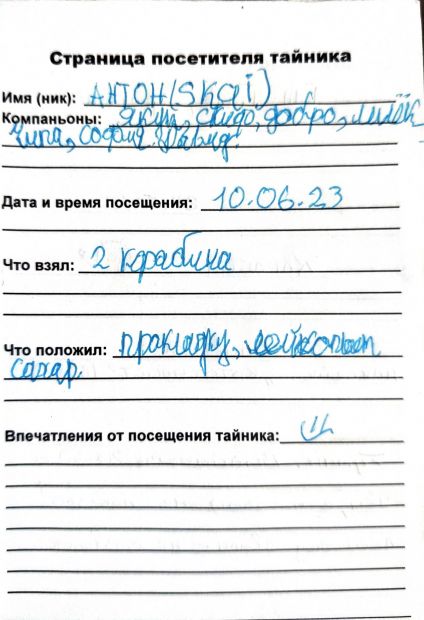 Страница посетителя тайника
Имя (ник): АНТОН (Skai)
Компаньоны: якут, скидо, добро, лилёк
чипа, София, Давид.
Дата и время посещения: 10.06.23
Что взял: 2 карабина
Что положил: прокладку, лейкопластырь
сахар.
Впечатления от посещения тайника: